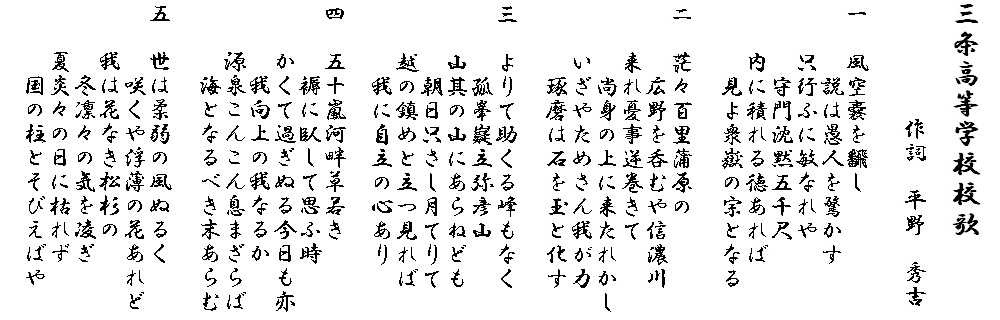 三条高等学校校歌
作詞 平野 秀吉
一
風空嚢を飜し
説は愚人を驚かす
只行ふに敏なれや
守門沈黙五千尺
内に積れる徳あれば
見よ衆嶽の宗となる
二
茫々百里蒲原の
広野を呑むや信濃川
来れ憂事逆巻きて
尚身の上に来たれかし
いざやためさん我が力
琢磨は石を玉と化す
三
よりて助くる峰もなく
孤峯嶷立弥彦山
山其の山にあらねども
朝日只さし月てりて
越の鎮めと立つ見れば
我に自立の心あり
四
五十嵐河畔草若き
褥に臥して思ふ時
かくて過ぎぬる今日も亦
我向上の我なるか
源泉こんこん息まざらば
海となるべき末あらむ
五
世は柔弱の風ぬるく
咲くや浮薄の花あれど
我は花なき松杉の
冬凛々の気を凌ぎ
夏炎々の日に枯れず
国の柱とそびえばや